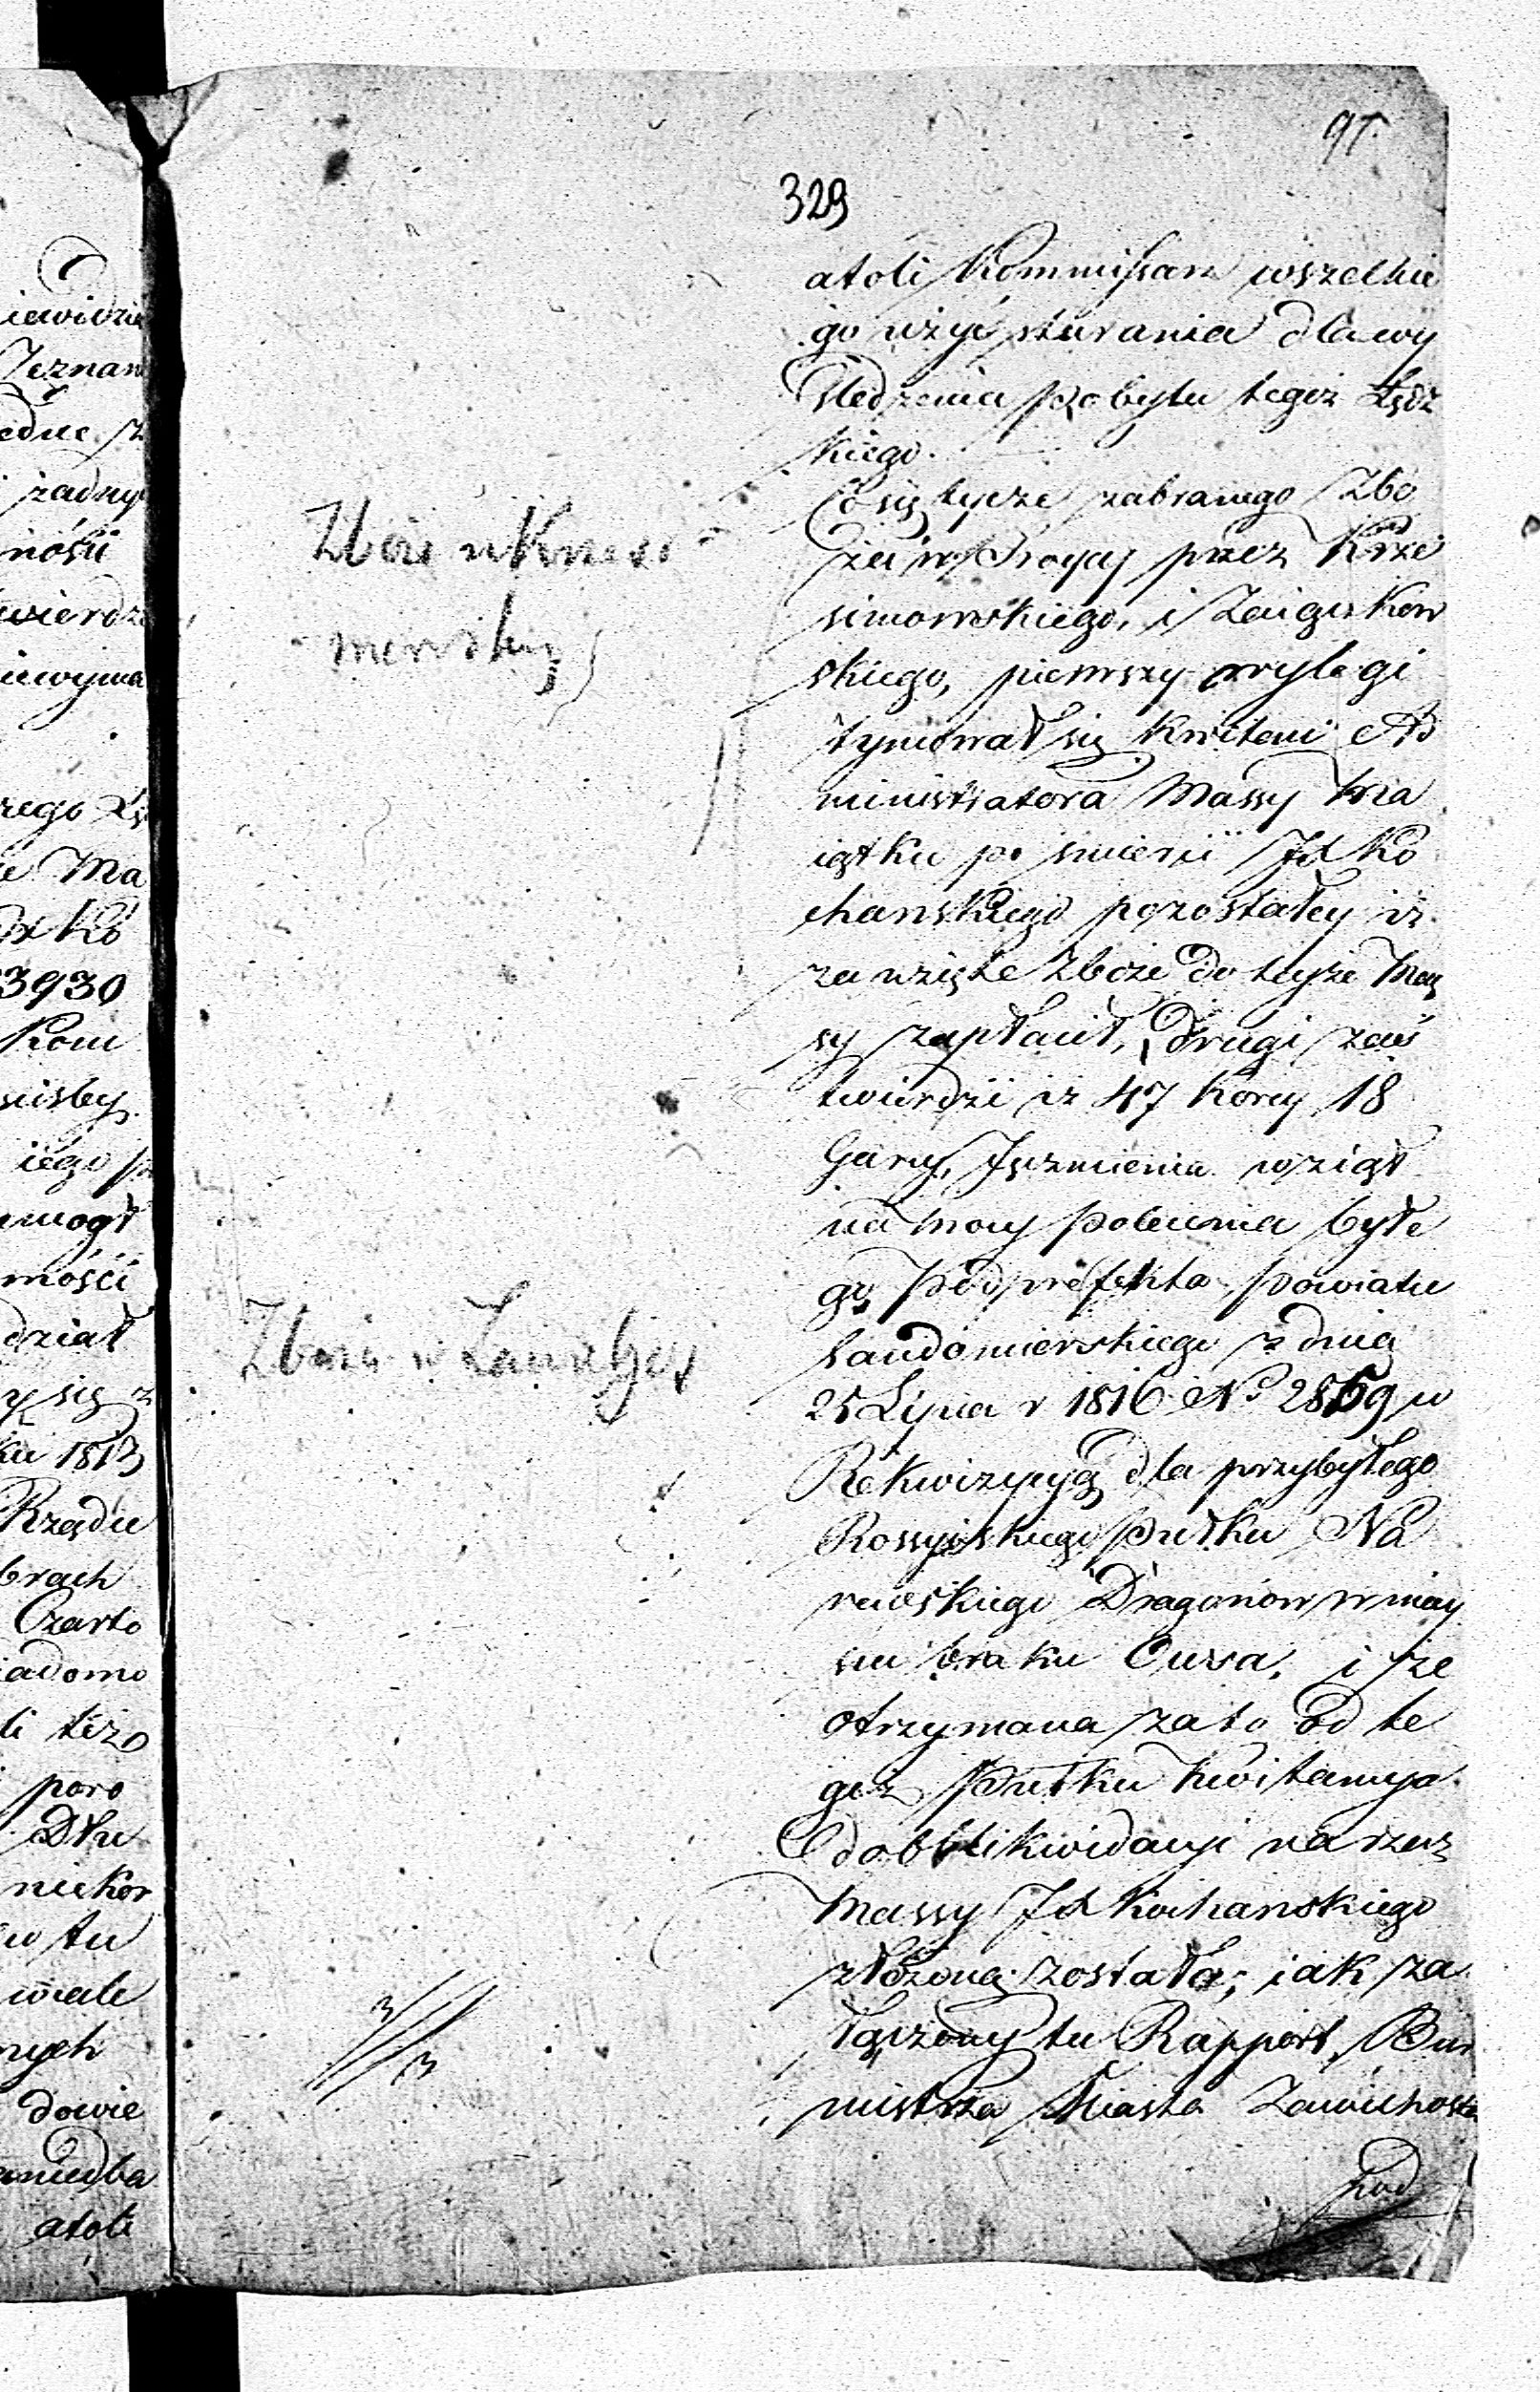 97
329
atoli Kommissarz wszelkie
go użyć starania dla wy
śledzenia pobytu tegoż Łędz
kiego.
Co się tycze zabranego Zbo
ża w przez Krze
simowskiego, i Zaigerskow
skiego, pierwszy wylegi
tymował się kwitem Ad
ministratora Massy Ma
iątku po śmierci Jd Ko
chanskiego pozostałey iż
za wzięte Zboże do teyże Mas
sy zapłacił, Drugi zaś
twierdzi iż 47 Korcy 18
Garcy, Jęczmienia wziął
na mocy polecenia byłe
go Podprefekta Powiatu
Sandomierskiego z dnia
25 Lipca r 1816 No 2869 w
Rekwizycyą dla przybyłego
Rossyiskiego Pułku Na
rewskiego Dragonow w miey
scu braku Owsa, i że
otrzymana za to od te
goż Pułku Kwitancya
do Likwidacyi na rzecz
Massy Jd Kochanskiego
złożoną została; iak za
łączony tu Rapport Bur
mistrza Miasta Zawichosta
pod
Zboże u Krzesi
mowskieg
Zboże u
iewidzie
Zeznan
edne z
żadny
ności
twierdz
iewyma
rzego Łę
ie Ma
Jd Ko
3930
Kom
iego p
mogł
mości
dział
y się z
ku 1813
Rządu
brach
Czarto
iadomo
li też o
poro
Dłu
niekor
w tu
wiele
nych
dowie
aniedba
atoli